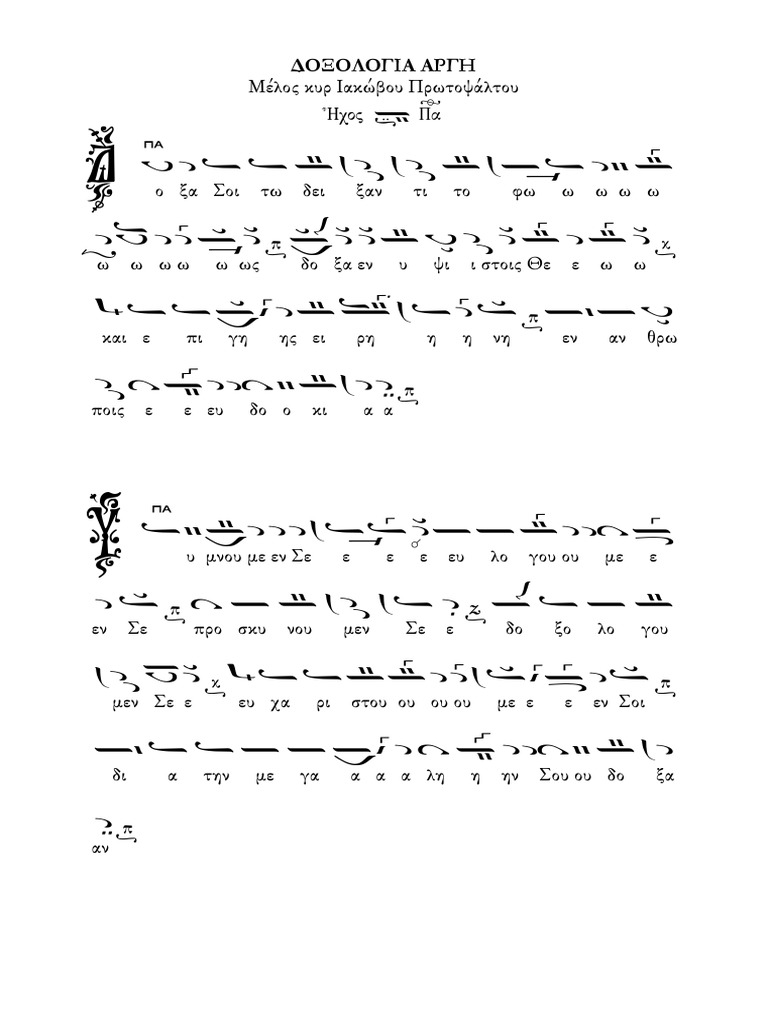 ΔΟΞΟΛΟΓΙΑ ΑΡΓΗ
Μέλος κυρ Ιακώβου Πρωτοψάλτου
Ἦχος Πα
ΠΑ
Δ ο ξα Σοι τω δει ξαν τι το φω ω ω ω ω
ω ω ω ω ω ως π δο ξα εν υ ψι ι στοις Θε ε ω ω κ
και ε πι γη ης ει ρη η η νη π εν αν θρω
ποις ε ε ευ δο ο κι α α π
ΠΑ
Υ υ μνου με εν Σε ε ε ε ευ λο γου ου με ε
εν Σε π προ σκυ νου μεν Σε ε z δο ξο λο γου
μεν Σε ε κ ευ χα ρι στου ου ου ου με ε ε εν Σοι π
δι α την με γα α α α λη η ην Σου ου δο ξα
αν π